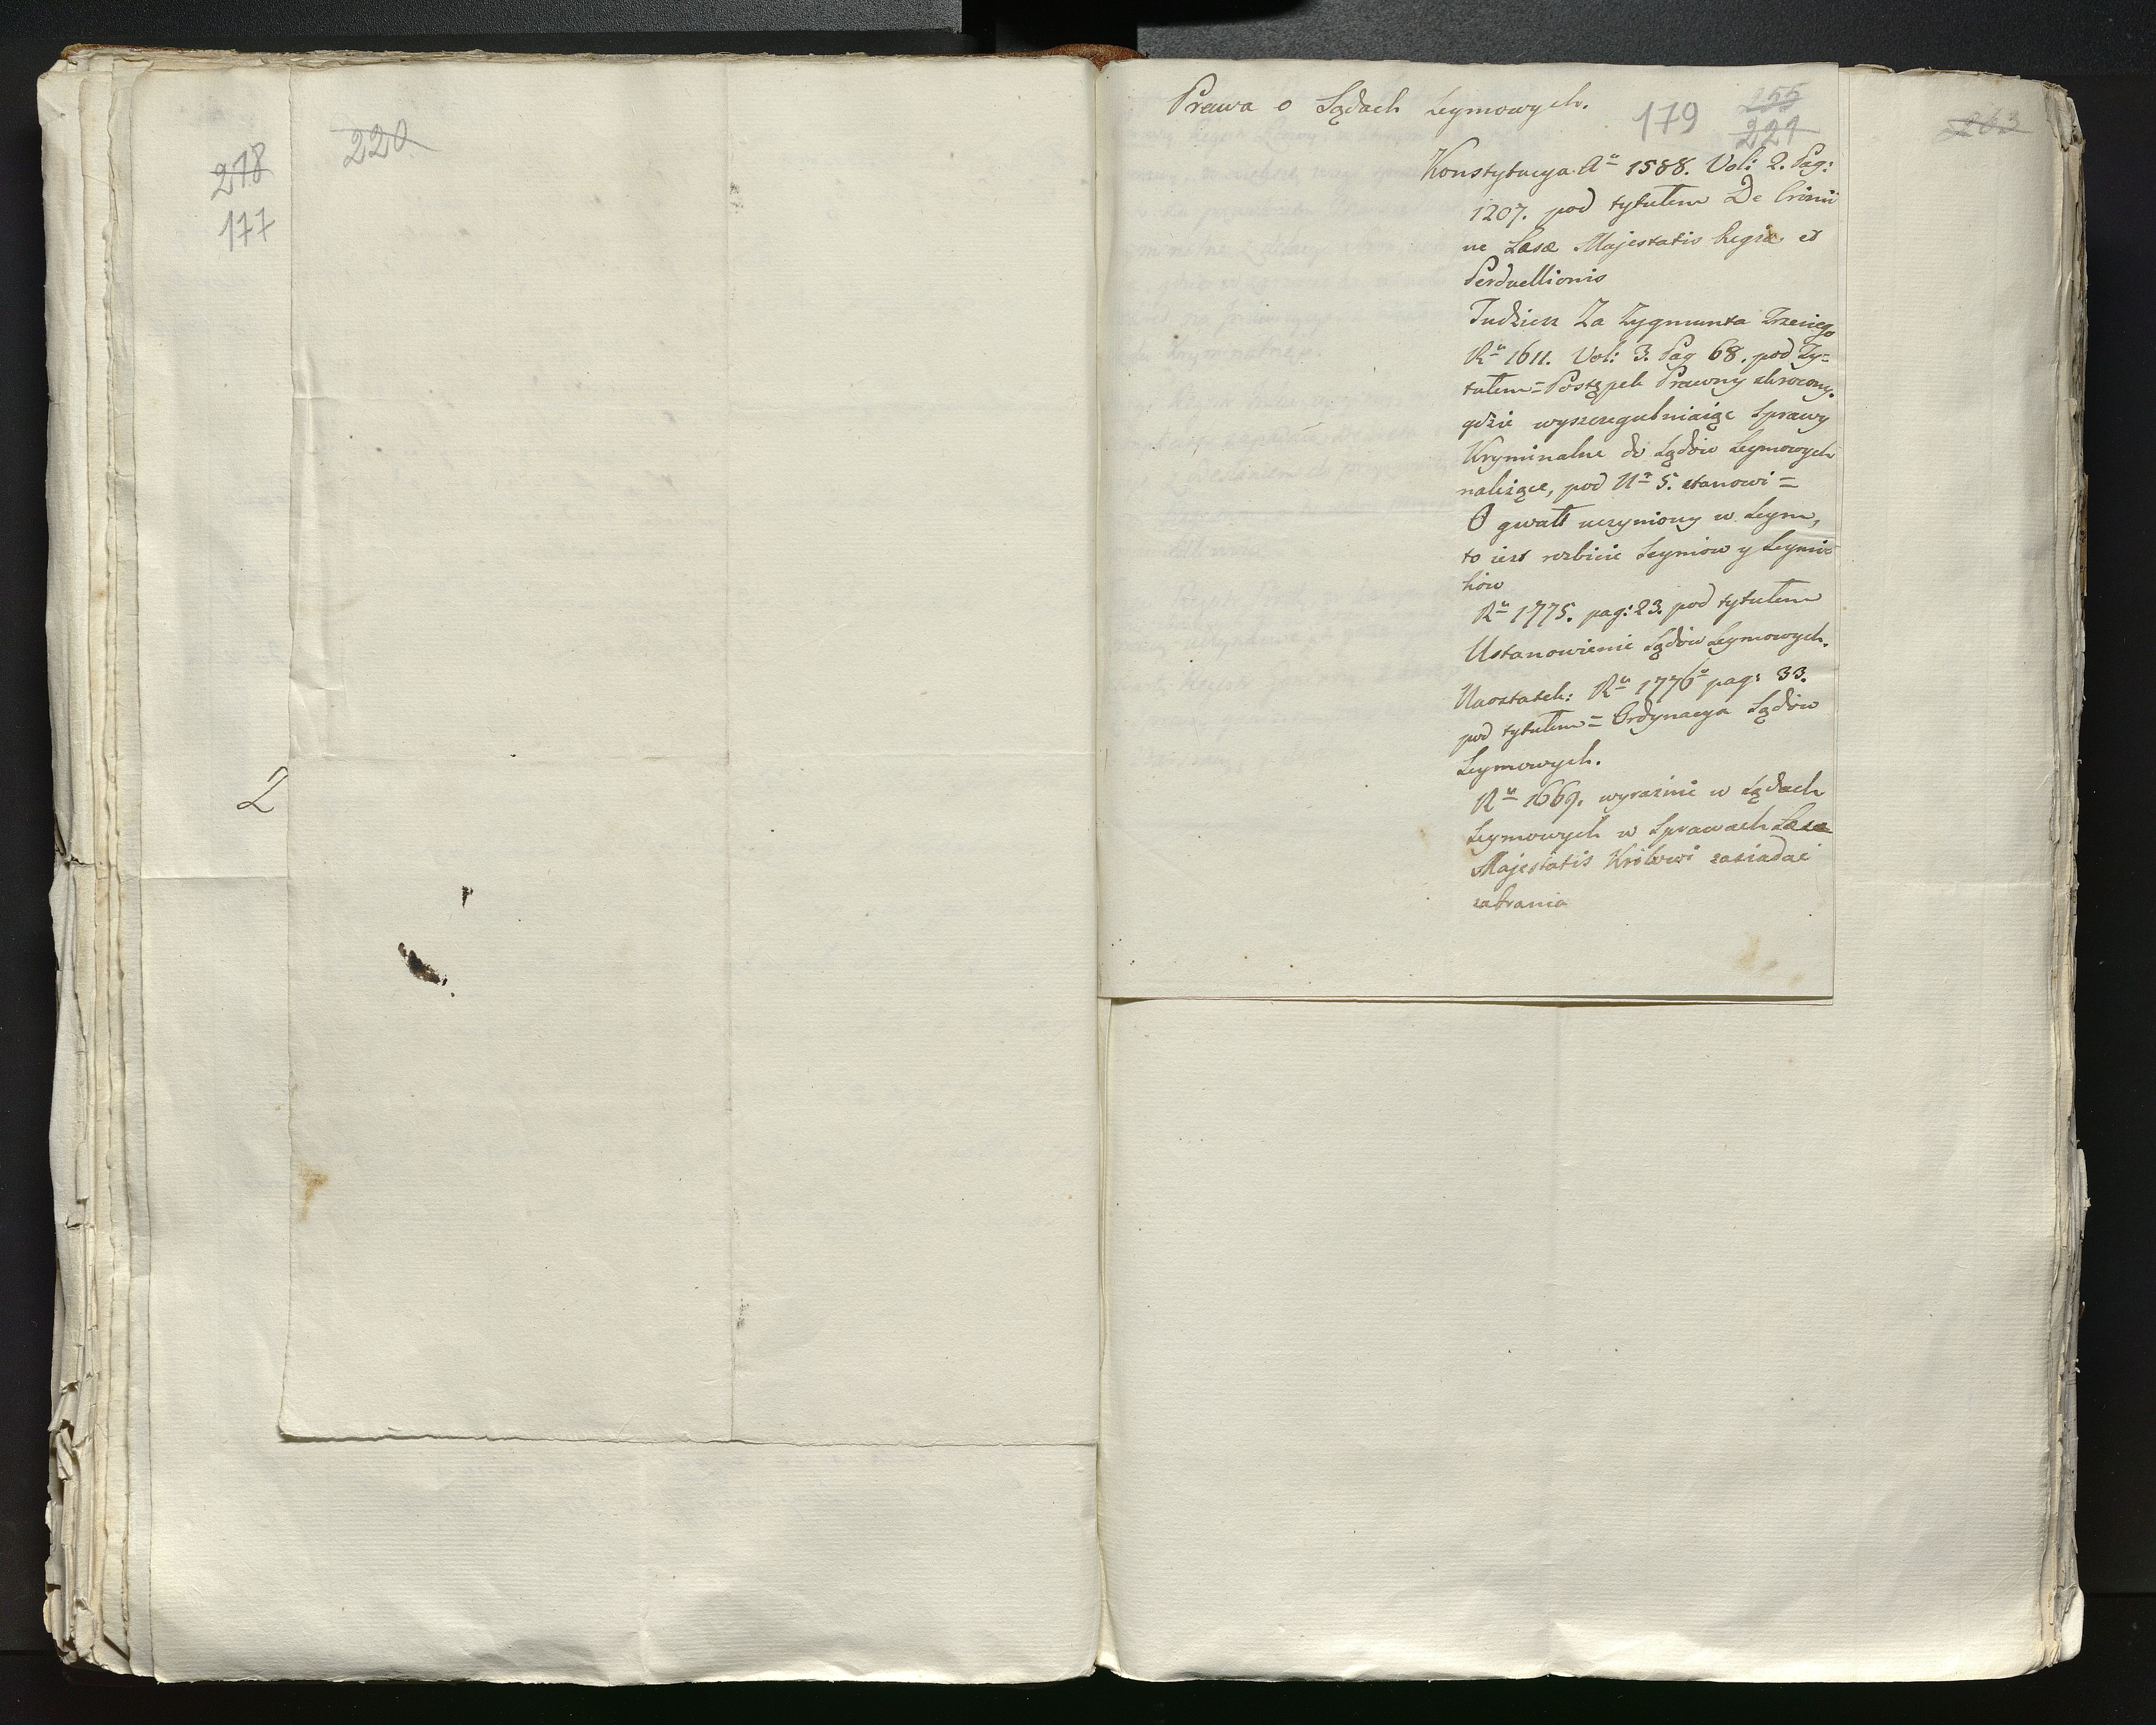 218
177
220
Z
Prawa o Sądach Seymowych.
179
255
221
263
Konstytucya Aº 1588. Vol: 2. Pag:
1207. pod tytułem De Crimi
ne Læsæ Majestatis Regiæ et
Perduellionis
Tudzież Za Zygmunta Trzeciego
Rº 1611. Vol: 3. Pag 68. pod Ty=
tułem = Postępek Prawny skrocony.
gdzie wyszczegulniaiąc Sprawy
Kryminalne do Sądów Seymowych
należące, pod Nº 5. stanowi =
O gwałt uczyniony w Seym,
to iest rozbicie Seymow y Seymi
kow
Rº 1775. pag: 23. pod tytułem
Ustanowienie Sądów Seymowych.
Naostatek: Rº 1776º pag: 33.
pod tytułem = Ordynacya Sądów
Seymowych.
Rº 1669. wyraźnie w Sądach
Seymowych w Sprawach Læsæ
Majestatis Krolowi zasiadać
zabrania